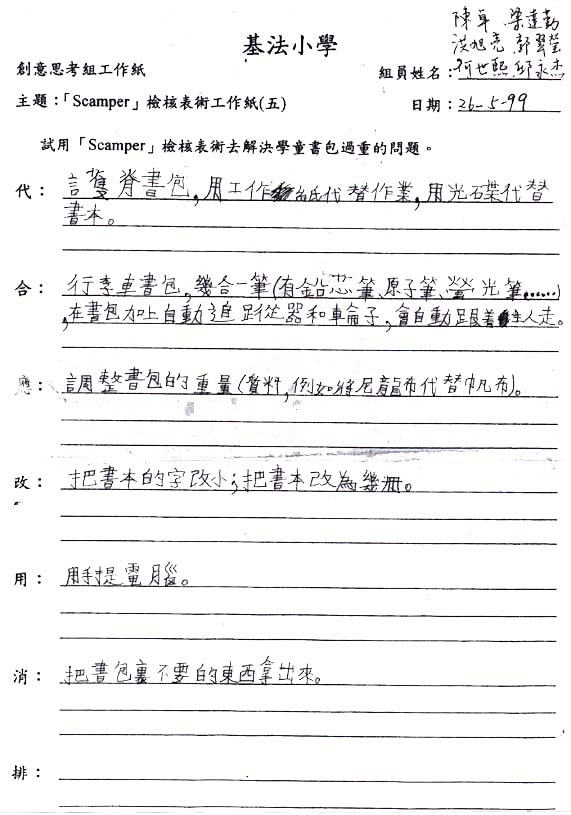 陳卓 梁達勤
基法小學 洪旭亮 郭翠瑩
創意思考組工作紙 組員姓名：何世熙 邱永杰
主題：「Scamper」檢核表術工作紙(五) 日期：26-5-99
試用「Scamper」檢核表術去解決學童書包過重的問題。
代： 護脊書包，用工作紙代替作業，用光碟代替
書本。
合： 行李車書包，幾合一筆(有鉛芯筆、原子筆、螢光筆……)
，在書包加上自動追蹤器和輪子，會自動跟着主人走。
應： 調整書包的重量(質料，例如將尼龍布代替帆布)。
改： 把書本的字改小；把書本改為幾冊。
用： 用手提電腦。
消： 把書包裏不要的東西拿出來。
排：